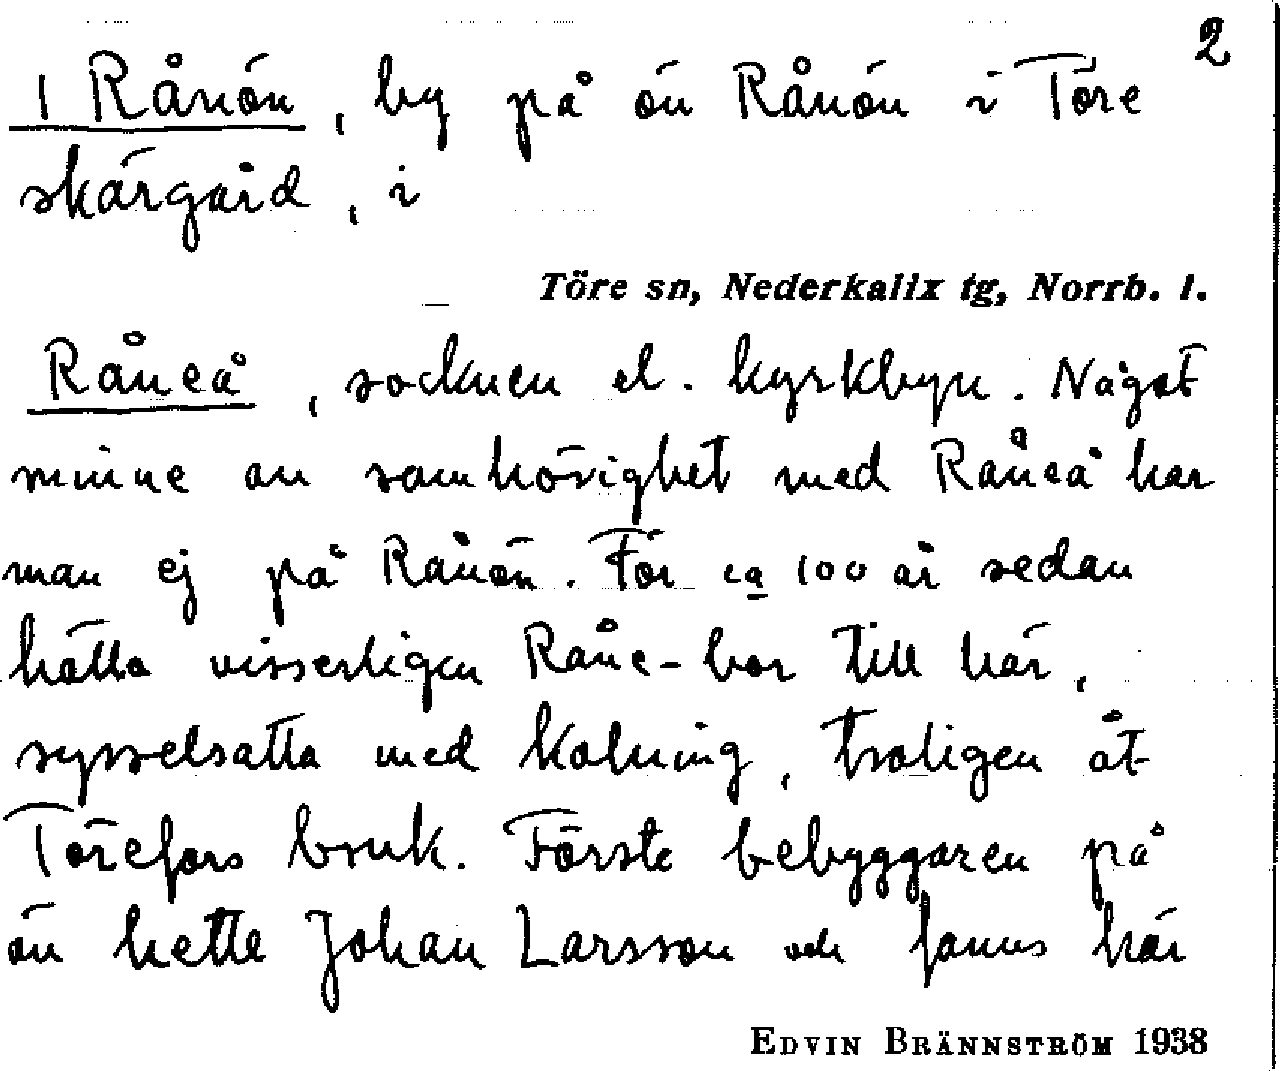 2
1 Rånön, by på ön Rånön i Töre
skärgård, i
Töre sn, Nederkalix tg, Norrb. l.
Råneå, socknen el. kyrkbyn. Något
minne av samhörighet med Råneå har
man ej på Rånön. För ca 100 år sedan
hålla visserligen Råne-bor till här,
sysselsatta med kolning, troligen åt
Törefors bruk. Förste bebyggaren på
ön hette Johan Larsson och fanns här
EDVIN BRÄNNSTRÖM 1938